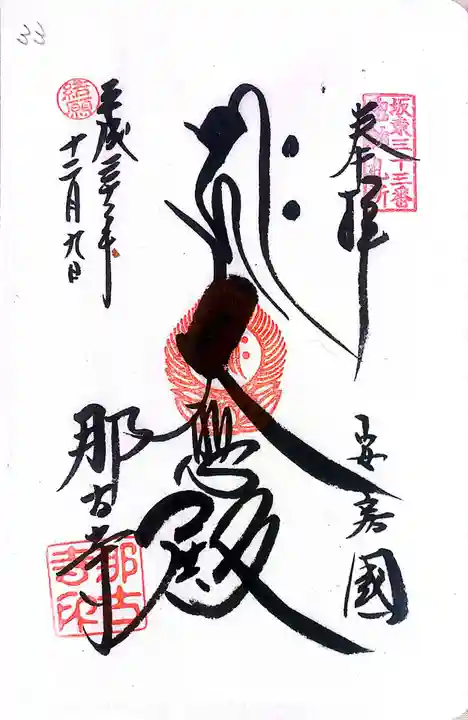 33
坂東三十三番
奉拝
安房國
大悲殿
平成三十年
十二月九日
結願
那古寺